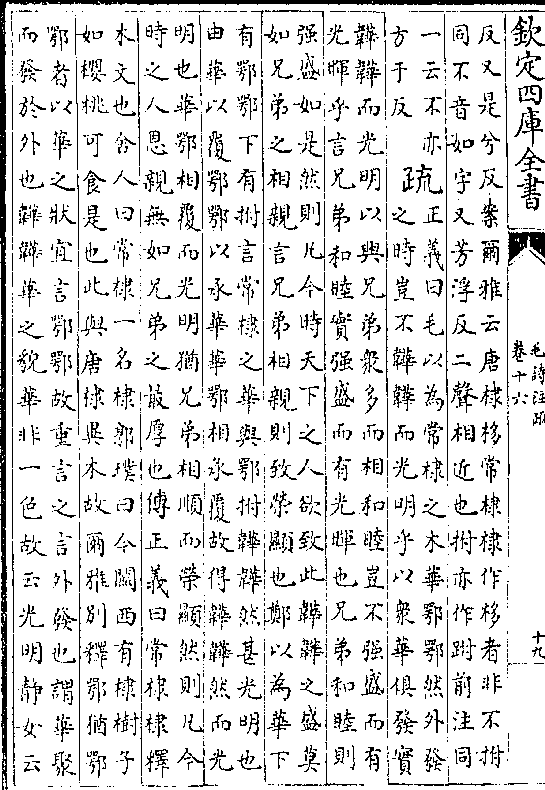 欽定四庫全書
毛詩注疏
卷十六
十九
反又是兮反案爾雅云唐棣栘常棣棣作栘者非不拊
同不音如字又芳浮反二聲相近也拊亦作跗前注同
一云不亦
方于反
疏
正義曰毛以為常棣之木華鄂鄂然外發
之時豈不韡韡而光明乎以衆華俱發實
韡韡而光明以興兄弟衆多而相和睦豈不强盛而有
光暉乎言兄弟和睦實强盛而有光暉也兄弟和睦則
强盛如是然則凡今時天下之人欲致此韡韡之盛莫
如兄弟之相親言兄弟相親則致榮顯也鄭以為華下
有鄂鄂下有拊言常棣之華與鄂拊韡韡然甚光明也
由華以覆鄂鄂以承華華鄂相承覆故得韡韡然而光
明也華鄂相覆而光明猶兄弟相順而榮顯然則凡今
時之人恩親無如兄弟之最厚也傳正義曰常棣棣釋
木文也舍人曰常棣一名棣郭璞曰今關西有棣樹子
如櫻桃可食是也此與唐棣異木故爾雅別釋鄂猶鄂
鄂者以華之狀宜言鄂鄂故重言之言外發也謂華聚
而發於外也韡韡華之貌華非一色故云光明静女云